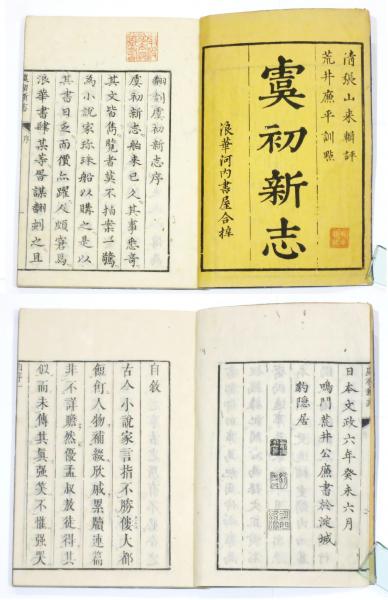 清張山来輯評
荒井廉平訓點
虞初新志
浪華河内書屋合梓
翻刻虞初新志序
虞初新志舶来已久其事悉奇
其文皆雋覽者莫不拍案一驚
為小說家珍珠船以購之是以
其書日乏而價亦躍人頗窘焉
浪華書肆某等胥謀翻刻之且
日本文政六年癸未六月
鳴門荒井公廉書於淀城
豹隱居
自敘
古今小說家言指不勝僂大都
飣人物補綴欣戚累牘連篇
非不詳贍然優孟叔敖徒得其
似而未傳其真強笑不懽強哭